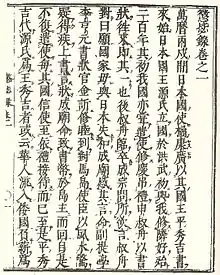 懲毖錄卷之一
萬曆丙戌間日本國使橘康廣以其國王平秀吉書
來始日本國王源氏立國於洪武初與我修隣好殆
二百年其初我國亦嘗遣使修慶吊禮申叔舟以書
狀往來即其一也後叔舟臨卒成宗問所欲言叔舟
對曰願國家毋與日本失和成廟感其言命副提學
李亨元書狀官金訢修睦到對馬島使臣以風水驚
疑得疾上書言狀成廟命致書幣於島主而回自是
不復遣使每其國信使至依禮接待而已至是平秀
吉代源氏爲王秀吉者或云華人流入倭國負薪爲
懲毖錄卷一